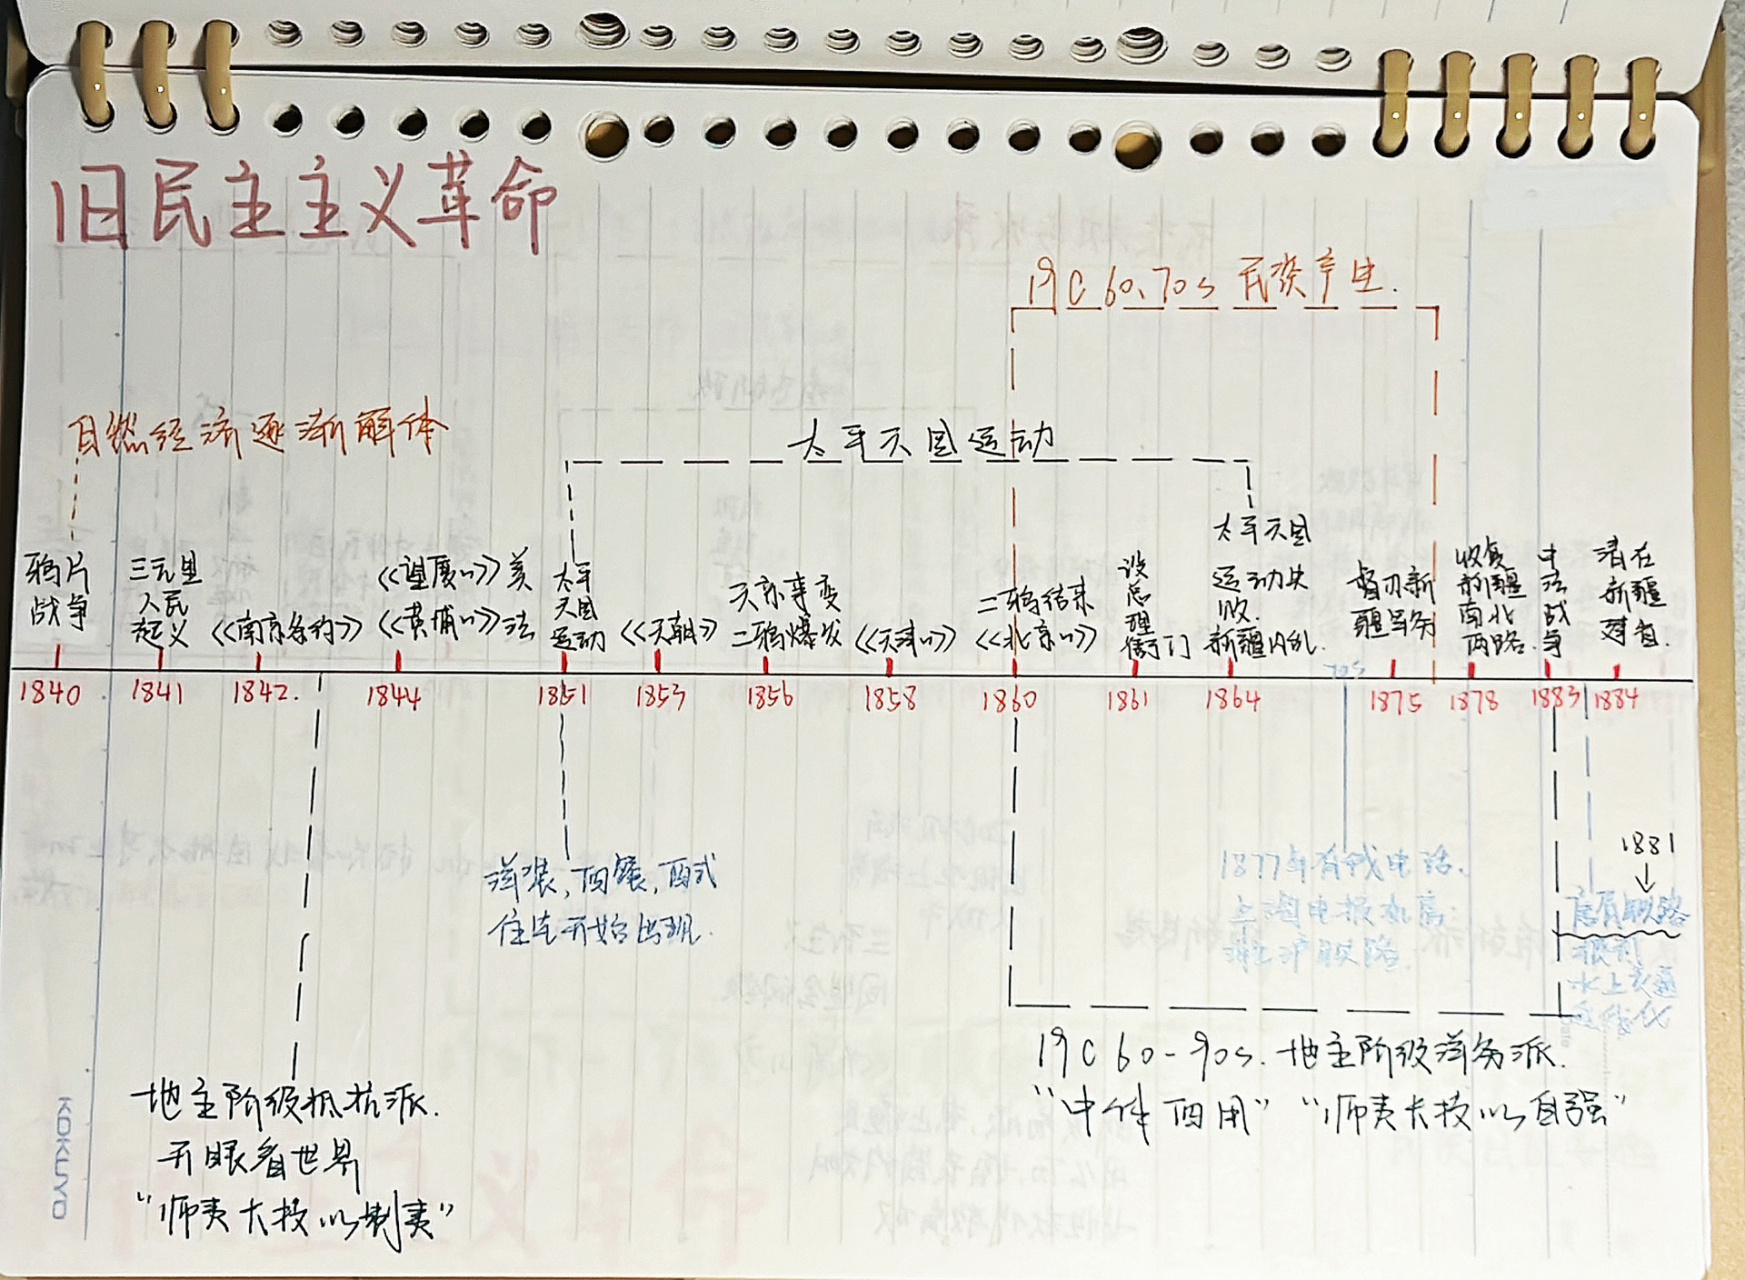 旧民主主义革命
19C 60、70s 民资产生.
自然经济逐渐解体
太平天国运动
鸦片
战争
三元里
人民
起义
《南京条约》
《望厦〃》美
《黄埔〃》法
太平
天国
运动
《天朝》
天京事变
二鸦爆发
《天津〃》
二鸦结束
《北京〃》
设
总
理
衙门
太平天国
运动失
败.
新疆内乱.
督办新
疆军务
收复
新疆
南北
两路.
中
法
战
争
清在
新疆
建省.
1840
1841
1842.
1844
1851
1853
1856
1858
1860
1861
1864
70s
1875
1878
1883
1884
洋装,西餐,西式
住宅开始出现.
1877年有线电话.
上海电报机房.
淞沪铁路.
1881
↓
唐胥铁路
水上交通
地主阶级抵抗派.
开眼看世界
“师夷长技以制夷”
19C 60-90s.地主阶级洋务派.
“中体西用” “师夷长技以自强”
KOKUYO